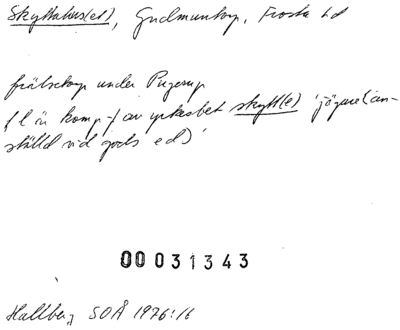 Skyttahus(et), Gudmuntorp, Frosta hd
frälsetorp under Pugerup
f l är komp-f av yrkesbet skytt(e) 'jägare (an-
ställd vid gods ed)'
00 031343
Hallberg SOÅ 1976:16